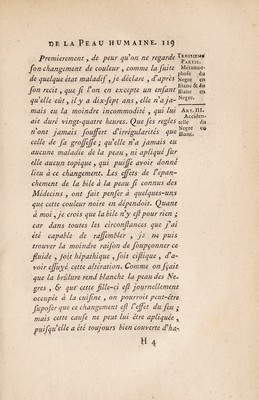 DE LA PEAU HUMAINE. 119
Premierement, de peur qu'on ne regarde
son changement de couleur, comme la suite
de quelque état maladif, je déclare, d'après
son recit, que si l'on en excepte un enfant
qu'elle eût, il y a dix-sept ans, elle n'a ja-
mais eu la moindre incommodité, qui lui
ait duré vingt-quatre heures. Que ses regles
n'ont jamais souffert d'irrégularités que
celle de sa grossesse; qu'elle n'a jamais eu
aucune maladie de la peau, ni apliqué sur
elle aucun topique, qui puisse avoir donné
lieu à ce changement. Les effets de l'épan-
chement de la bile à la peau si connus des
Médecins, ont fait penser à quelques-uns
que cette couleur noire en dépendoit. Quant
à moi, je crois que la bile n'y est pour rien;
car dans toutes les circonstances que j'ai
été capable de rassembler, je ne puis
trouver la moindre raison de soupçonner ce
fluide, soit hépathique, soit cistique, d'a-
voir essuyé cette altération. Comme on sçait
que la brûlure rend blanche la peau des Ne-
gres, & que cette fille-ci est journellement
occupée à la cuisine, on pourroit peut-être
suposer que ce changement est l'effet du feu;
mais cette cause ne peut lui être apliquée,
puisqu'elle a été toujours bien couverte d'ha-
H 4
TROISIEME
PARTIE.
Métamor-
phose du
Negre en
Blanc & du
Blanc en
Negre.
ART. III.
Acciden-
telle du
Negre en
Blanc.